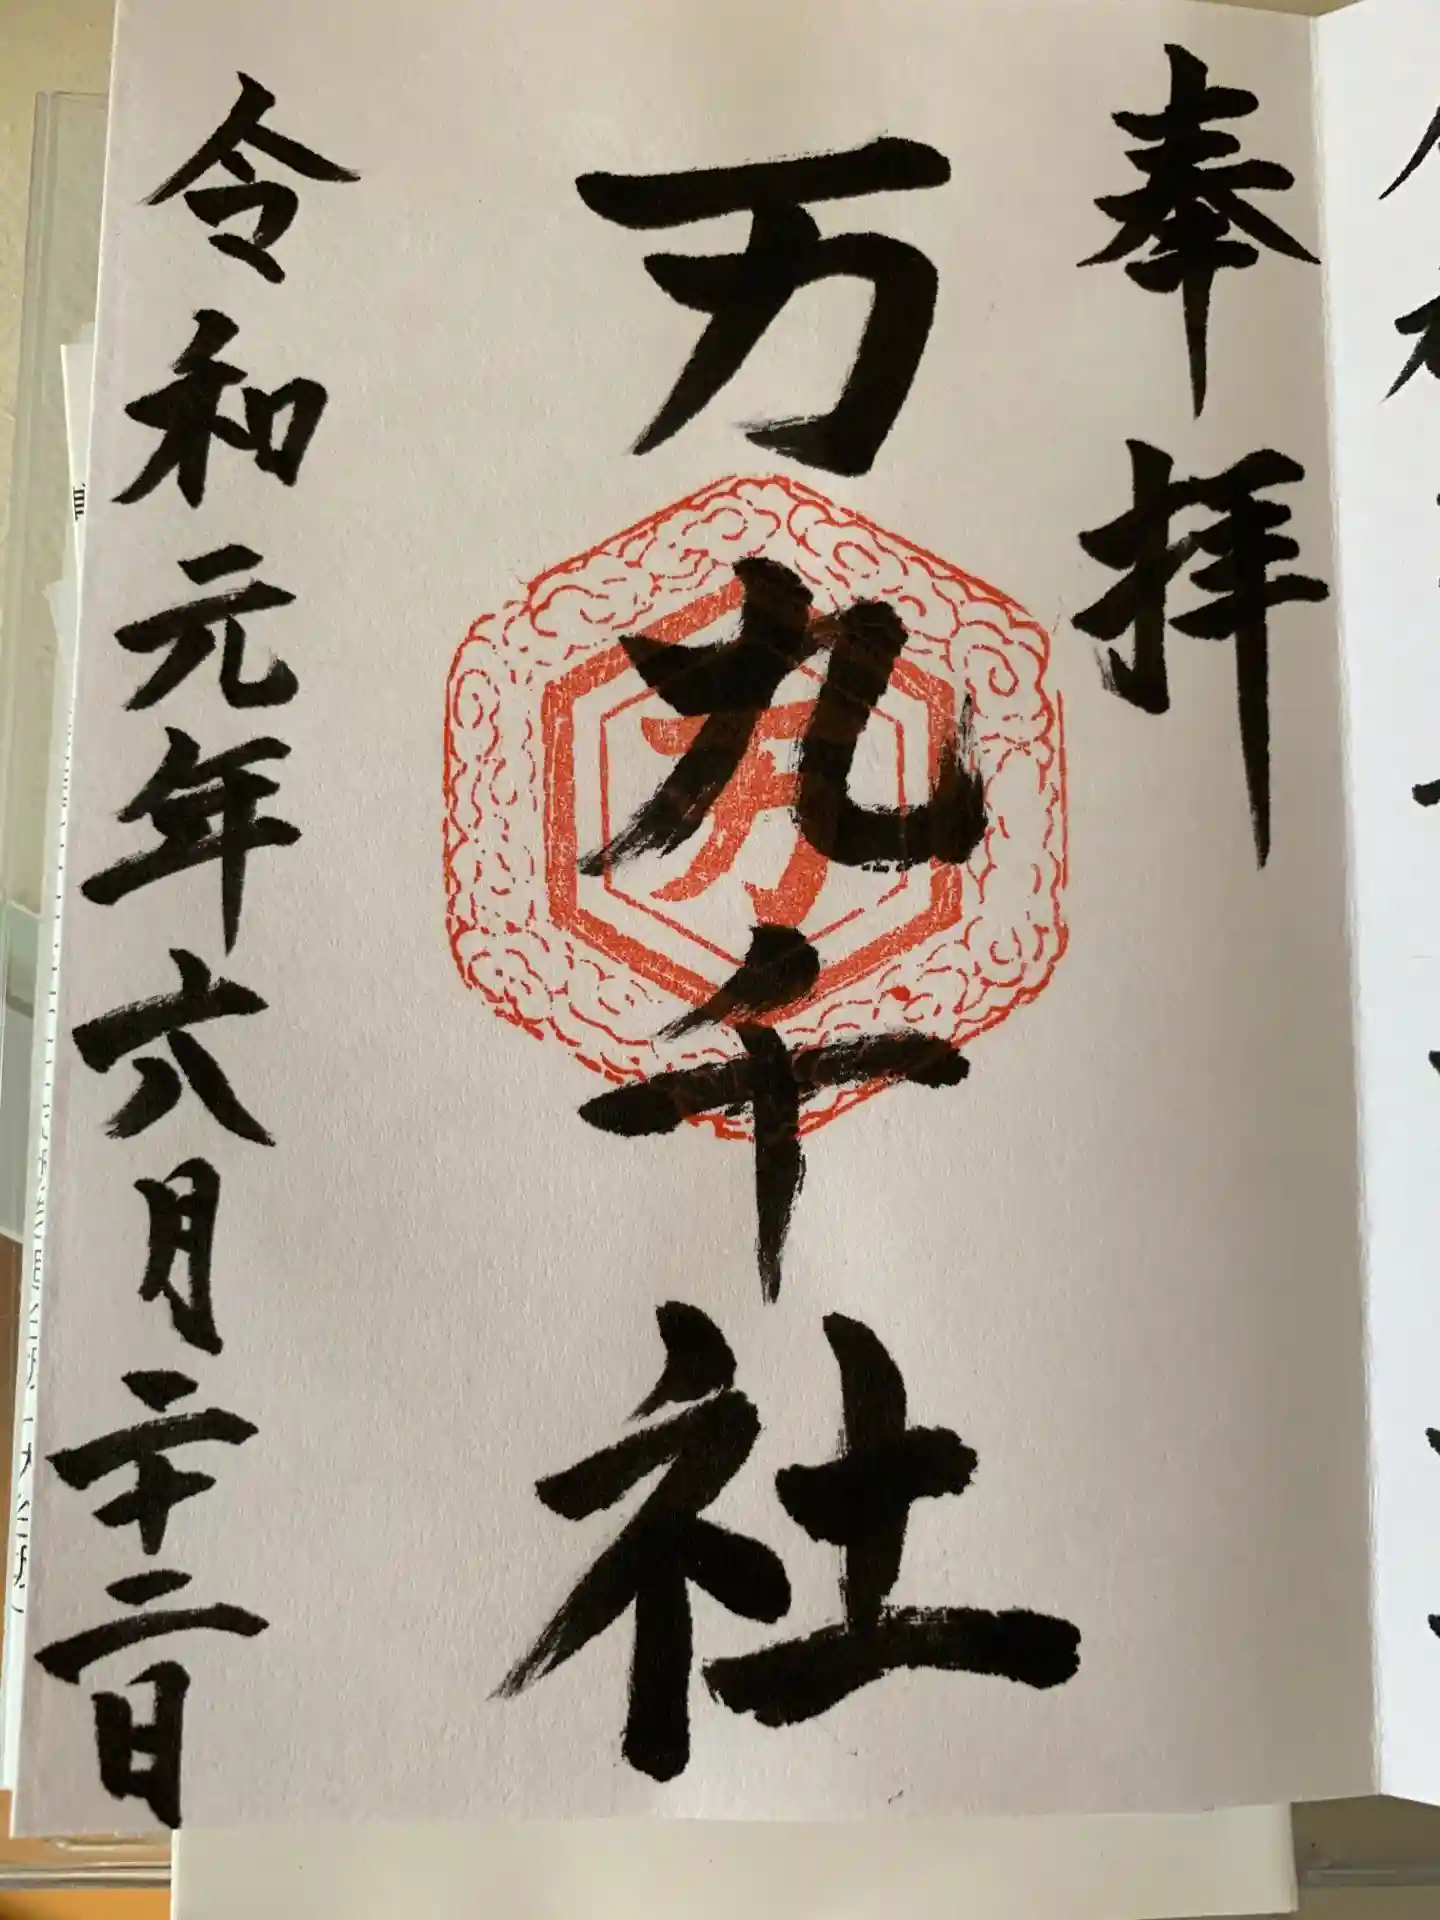 奉拝
万九千社
令和元年六月二十二日